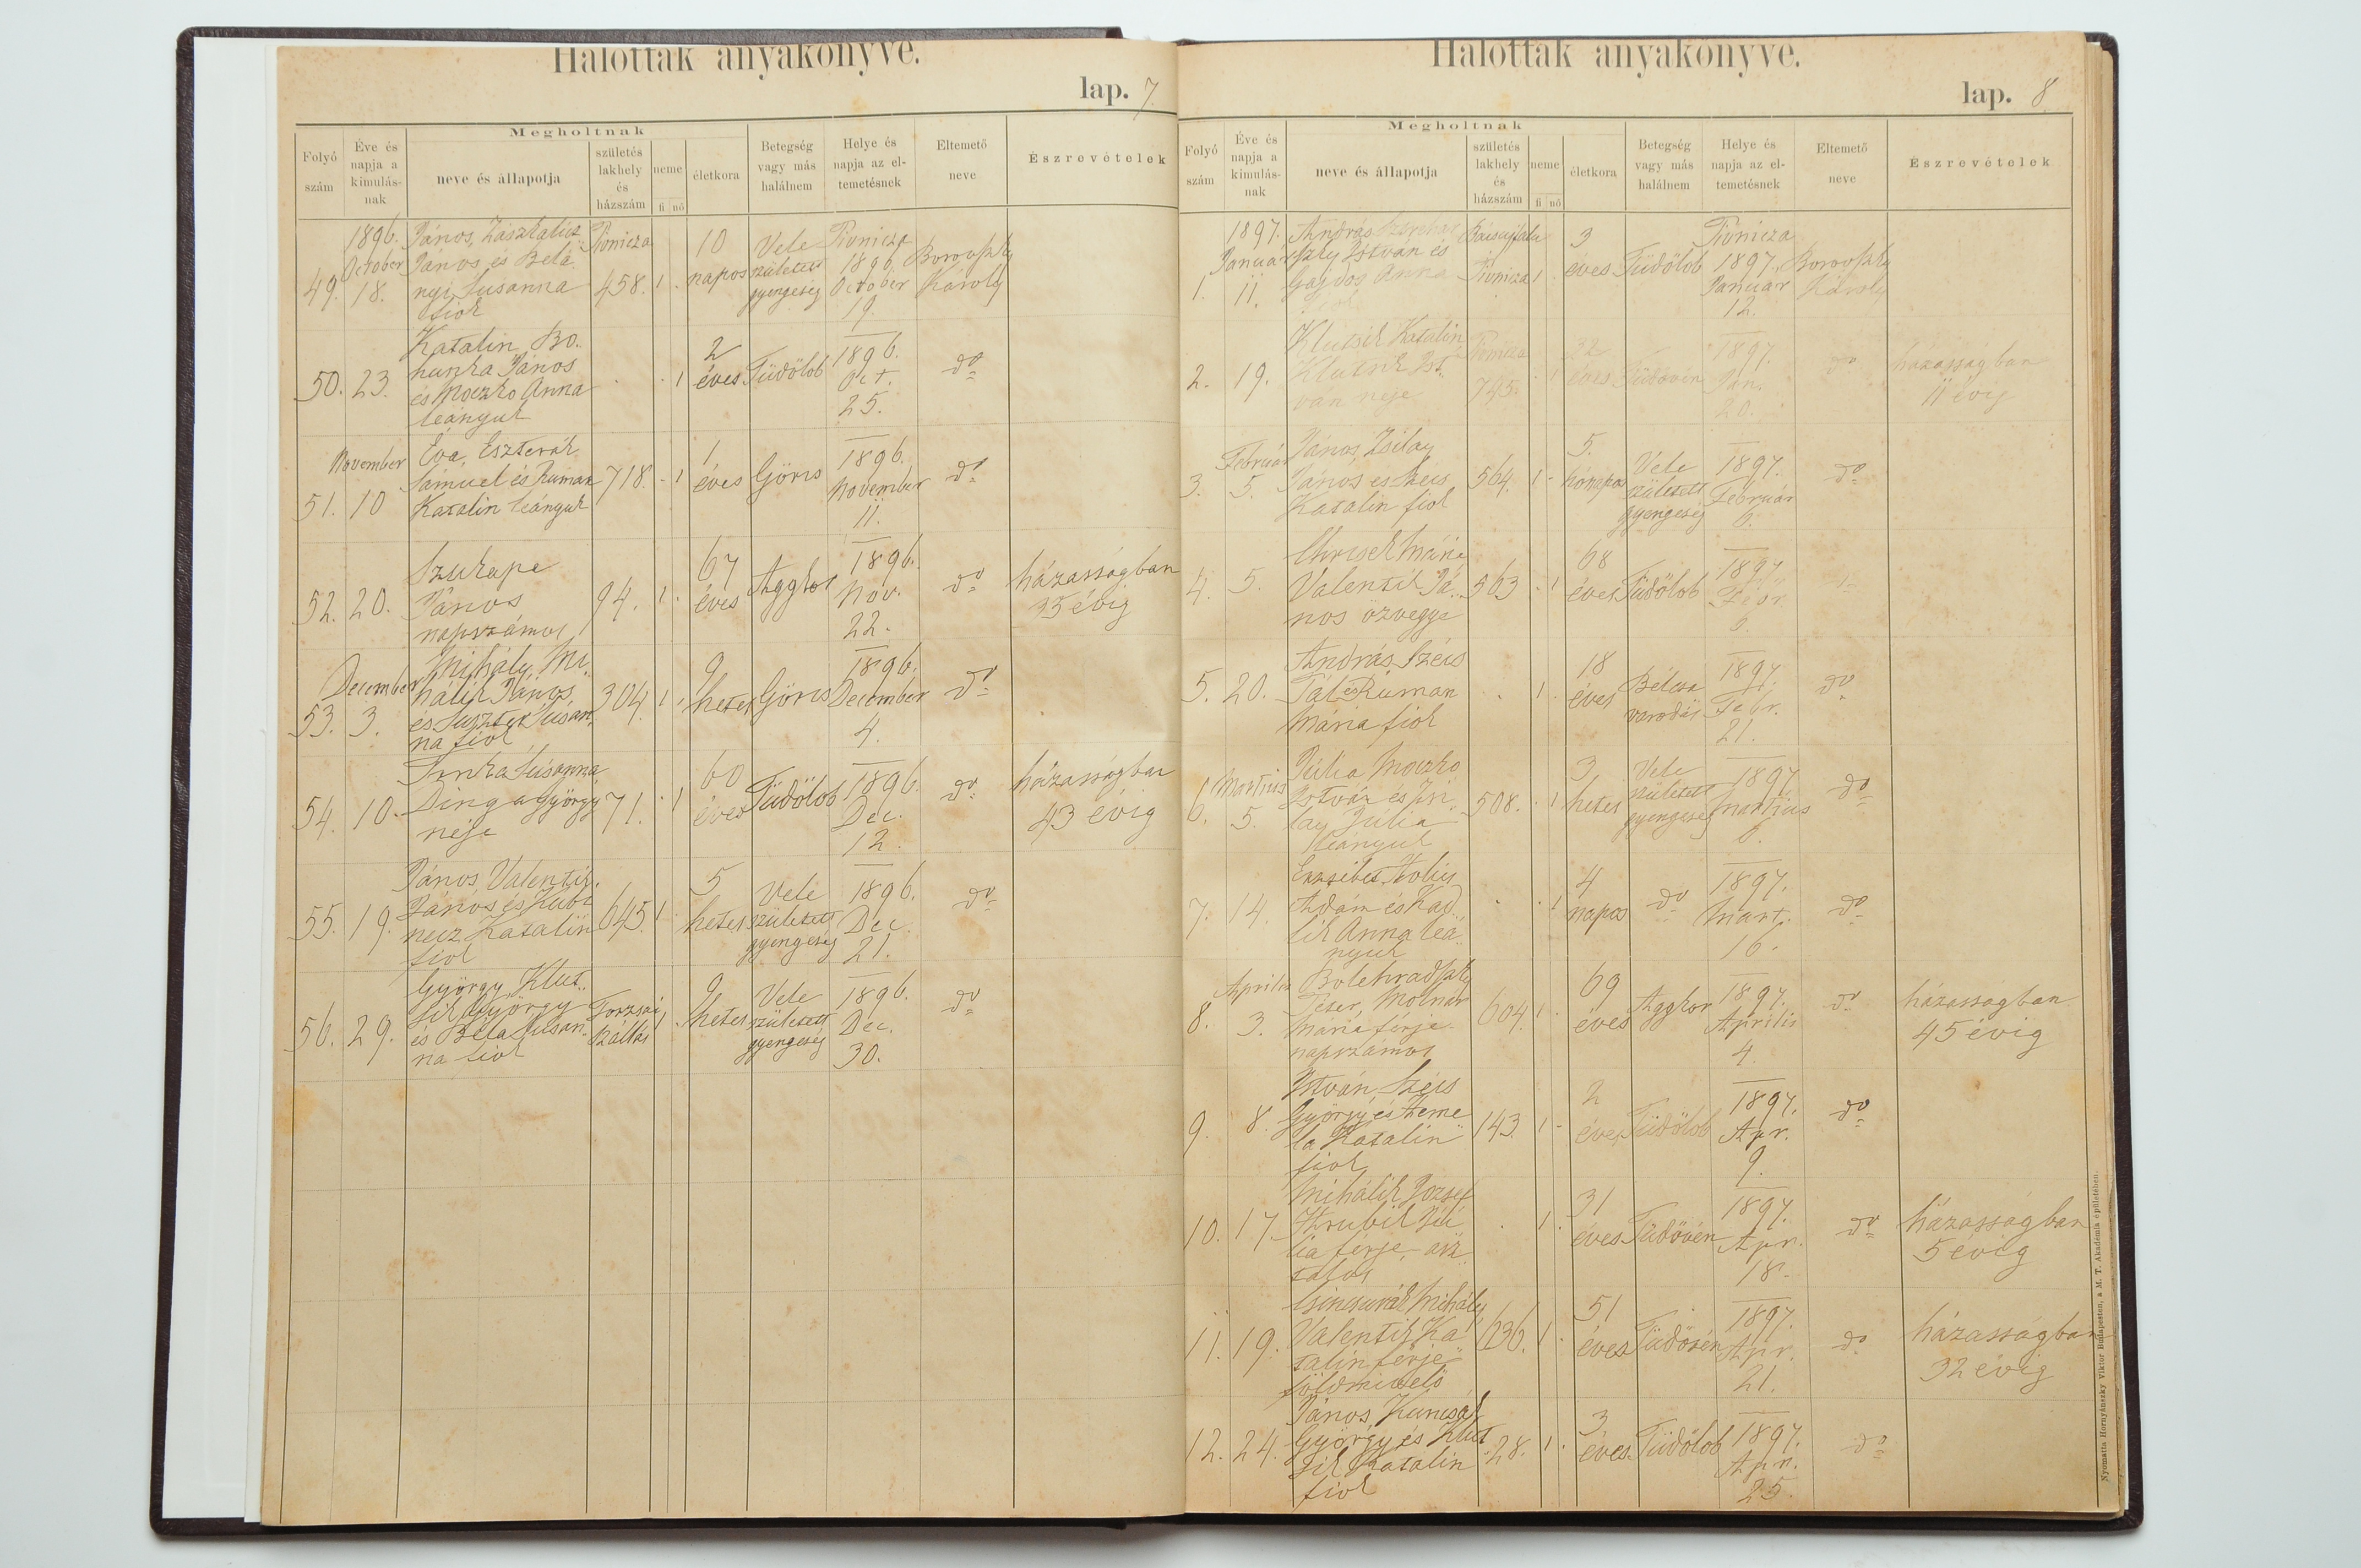 Halottak anyakönyve.
lap. 7
Megholtnak
Folyó szám
Éve és napja a kimulásnak
neve és állapotja
születés lakhely és házszám
neme
fi nő
életkora
Betegség vagy más halálnem
Helye és napja az eltemetésnek
Eltemető neve
Észrevételek
49.
1896. October 18.
János,
János és
Susanna
fiok
Pivnicza
458.
1
10 napos
Vele született gyengeség
Pivnicza 1896 October 19.
Károly
50.
23.
Katalin, Bo-
hunka János
és Moczko Anna
leányuk
1
2 éves
Tüdőlob
1896. Oct. 25.
do
51.
November 10
Éva, Eszterák
Sámuel és Ruman
Katalin leányuk
718.
1
1 éves
Görcs
1896. November 11.
do
52.
20.
János
napszámos
94.
1
67 éves
Aggkor
1896. Nov. 22.
do
házasságban
35 évig
53.
December 3.
Mihály, Mi-
hálik János
és Susán-
na fiok
304.
1
9 hetes
Görcs
1896. December 4.
do
54.
10.
Susanna
Dinga György
neje
71.
1
60 éves
Tüdőlob
1896. Dec. 12.
do
házasságban
43 évig
55.
19.
János, Valentik
János és
Katalin
fiok
645.
1
5 hetes
Vele született gyengeség
1896. Dec. 21.
do
56.
29.
György, Klut-
sik György
és Béla Susan-
na fiok
szállás
1
9 hetes
Vele született gyengeség
1896. Dec. 30.
do
Halottak anyakönyve.
lap. 8
Megholtnak
Folyó szám
Éve és napja a kimulásnak
neve és állapotja
születés lakhely és házszám
neme
fi nő
életkora
Betegség vagy más halálnem
Helye és napja az eltemetésnek
Eltemető neve
Észrevételek
1.
1897. Január 11.
András
István és
Gajdos Anna
Pivnicza
1
3 éves
Tüdőlob
Pivnicza 1897. Január 12.
Károly
2.
19.
Klutsik Katalin
Klutsik Ist-
van neje
Pivnicza
745.
1
22 éves
Tüdővén
1897. Jan. 20.
do
házasságban
évig
3.
Február 5.
János, Zsilay
János és Szécs
Katalin fiok
564.
1
5. hónapos
Vele született gyengeség
1897. Február 6.
do
4.
5.
Mária
Valentik Já-
nos özvegye
563
1
68 éves
Tüdőlob
1897. Febr. 6.
5.
20.
András, Szécs
Pál és Ruman
Mária fiok
1
18 éves
1897. Febr. 21.
do
6.
Martius 5.
Júlia, Moczko
István és Zsi-
lay Júlia
leányuk
508.
1
3 hetes
Vele született gyengeség
1897 Martius 6.
do
7.
14.
Erzsébet,
Ádám és Kad-
lik Anna leá-
nyuk
1
4 napos
do
1897. Mart. 16.
do
8.
Aprilis 3.
Péter, Molnár
Mária férje
napszámos
604.
1
69 éves
Aggkor
1897. Aprilis 4.
do
házasságban
45 évig
9.
8.
István, Szécs
György és Zeme-
la Katalin
fiok
143.
1
2 éves
Tüdőlob
1897. Apr. 9.
do
10.
17.
Mihálik József
Hrubik Jú-
lia férje, asz-
talos
1
31 éves
Tüdővén
1897. Apr. 18.
do
házasságban
5 évig
11.
19.
Mihály
Valentik Ka-
talin férje
földmivelő
636.
1
51 éves
Tüdővén
1897. Apr. 21.
do
házasságban
32 évig
12.
24.
János, Kuncsák
György és Klut-
sik Katalin
fiok
28.
1
3 éves
Tüdőlob
1897. Apr. 25.
do
Nyomatta Hornyánszky Viktor Budapesten, a M. T. Akademia épületében.